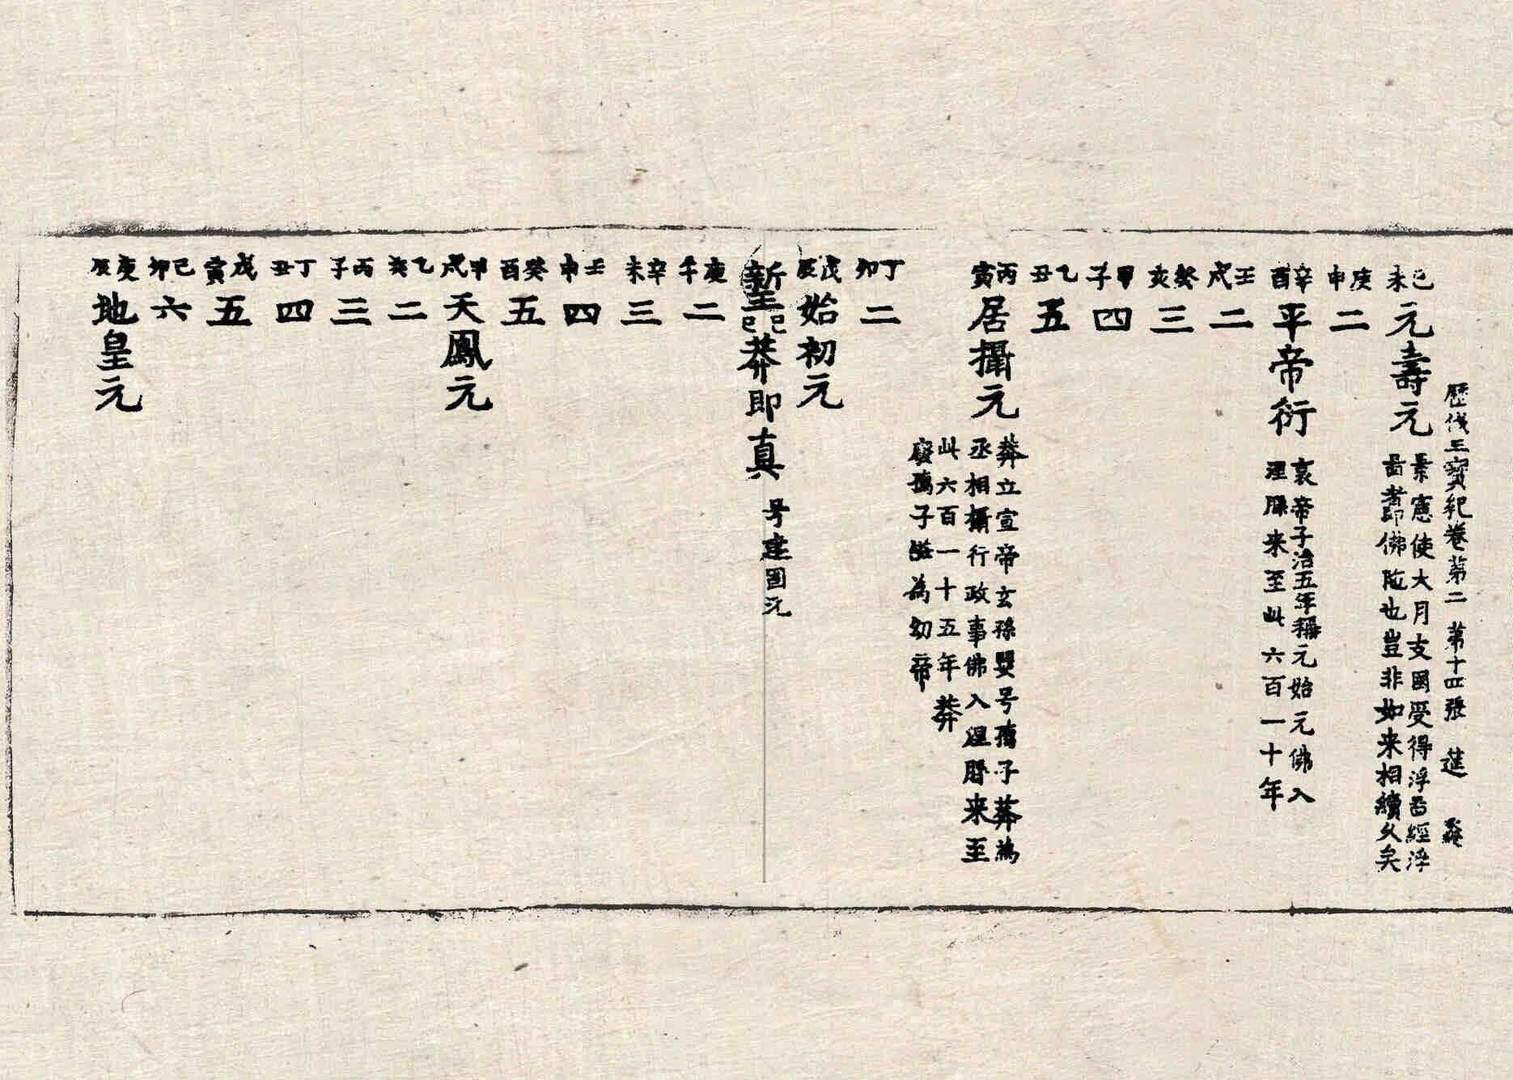 歷代三寶紀卷第二 第十四張 莚
己未 元壽元
景憲使大月支國受得浮啚經浮
啚者即佛陁也豈非如来相續久矣
庚申 二
辛酉 平帝衍
哀帝子治五年稱元始元佛入
涅暦来至此六百一十年
壬戌 二
癸亥 三
甲子 四
乙丑 五
丙寅 居攝元
莽立宣帝玄孫嬰号孺子莽為
丞相攝行政事佛入涅暦来至
此六百一十五年莽
廢孺子為幼帝
丁卯 二
戊辰 始初元
新王己巳莽即真 号建国元
庚午 二
辛未 三
壬申 四
癸酉 五
甲戌 天鳳元
乙亥 二
丙子 三
丁丑 四
戊寅 五
己卯 六
庚辰 地皇元